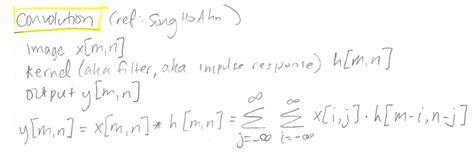 Convolution (ref: Sung Ho Ahn)
image x[m,n]
kernel (aka filter, aka impulse response) h[m,n]
output y[m,n]
y[m,n] = x[m,n] * h[m,n] = ∞∑j=-∞ ∞∑i=-∞ x[i,j]·h[m-i,n-j]